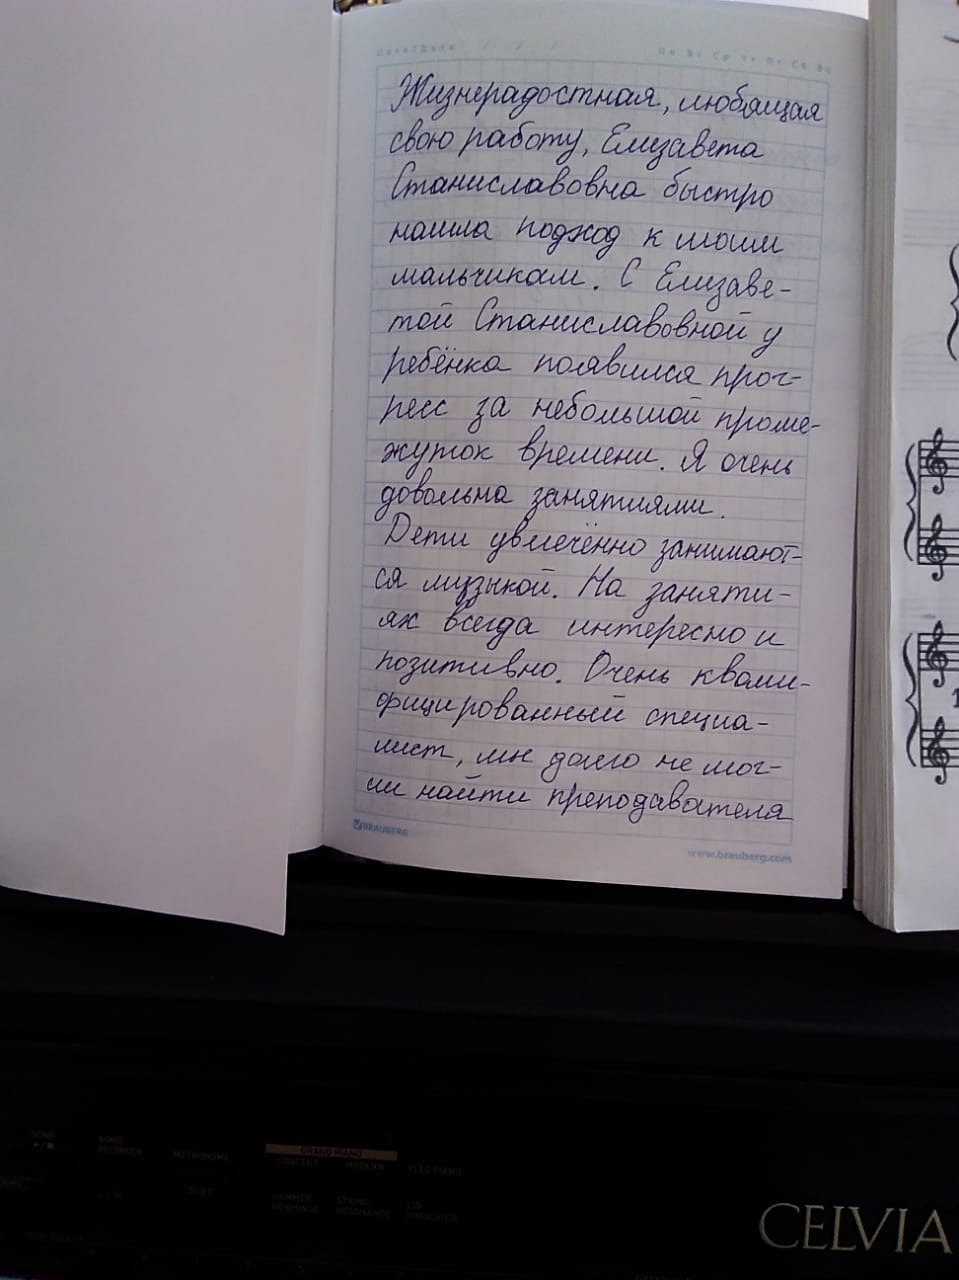 Date/Дата / / /
Пн Вт Ср Чт Пт Сб Вс
Жизнерадостная, любящая
свою работу, Елизавета
Станиславовна быстро
нашла подход к моим
мальчикам. С Елизаве-
той Станиславовной у
ребёнка появился прог-
ресс за небольшой проме-
жуток времени. Я очень
довольна занятиями.
Дети увлечённо занимают-
ся музыкой. На заняти-
ях всегда интересно и
позитивно. Очень квали-
фицированный специа-
лист, мы долго не мог-
ли найти преподавателя
BRAUBERG
www.brauberg.com
SONG
SONG
RECORDER
METRONOME
GRAND PIANO
CONCERT MODERN ELEC PIANO
DUET
HAMMER
RESPONSE
STRING
RESONANCE
LID
SIMULATOR
CELVIA